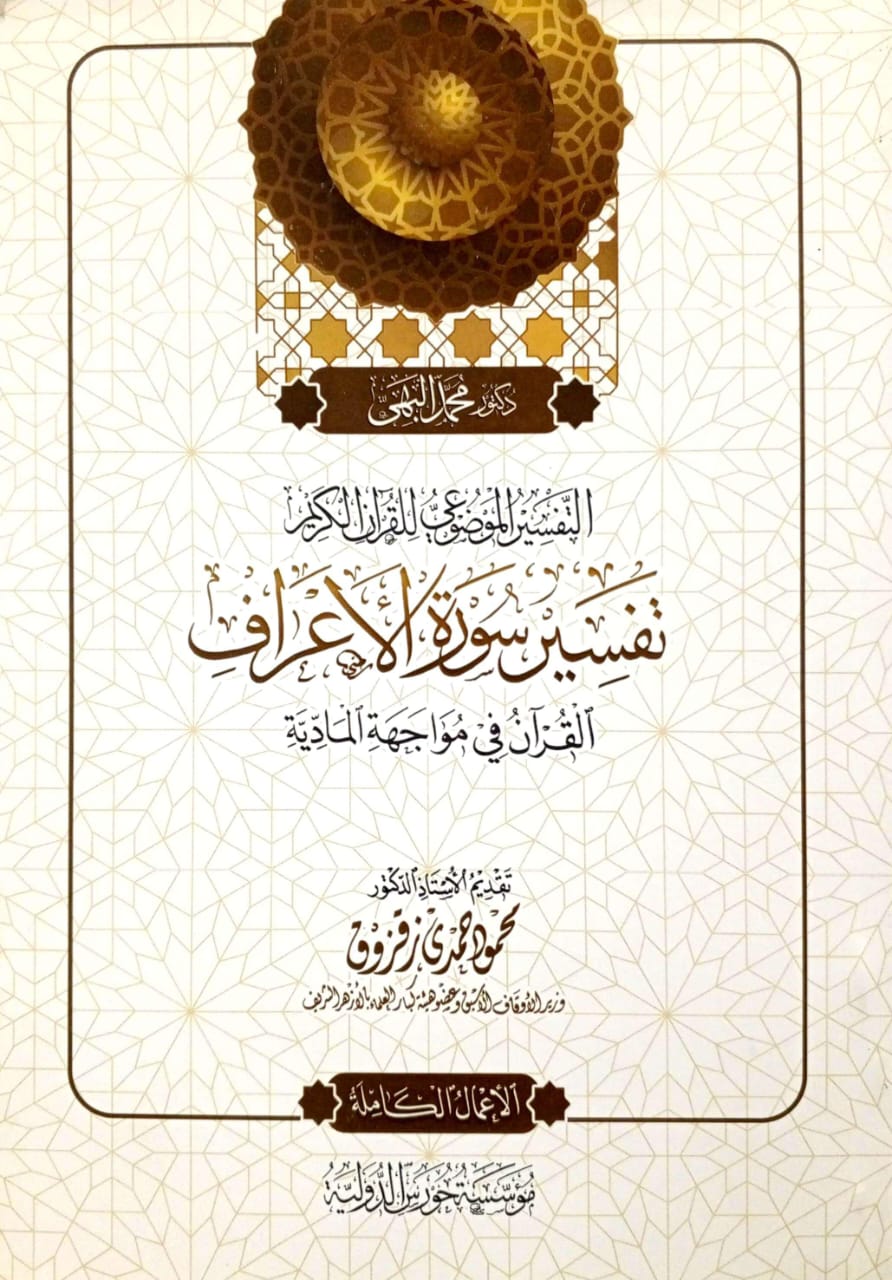 دكتور محمد البهي
التفسير الموضوعي للقرآن الكريم
تفسير سورة الأعراف
القرآن في مواجهة المادية
تقديم الأستاذ الدكتور
محمود حمدي زقزوق
وزير الأوقاف الأسبق وعضو هيئة كبار العلماء بالأزهر الشريف
الأعمال الكاملة
مؤسسة حورس الدولية